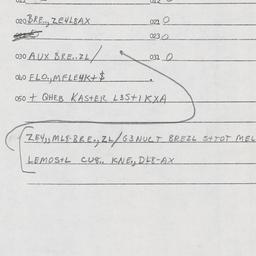 020 BRE.., ZEYLBAX 021 0
023 0
030 AUX BRE..ZL/ 031 0
040 ELO., MFLEYK+$
050 + QHEB KASTER L35+1KXA
ZEY,, MLF-BRE., ZL/63NULT BREZL S+TOT MEL
LEMOS+L CU8.. KNE,, DL8-AX